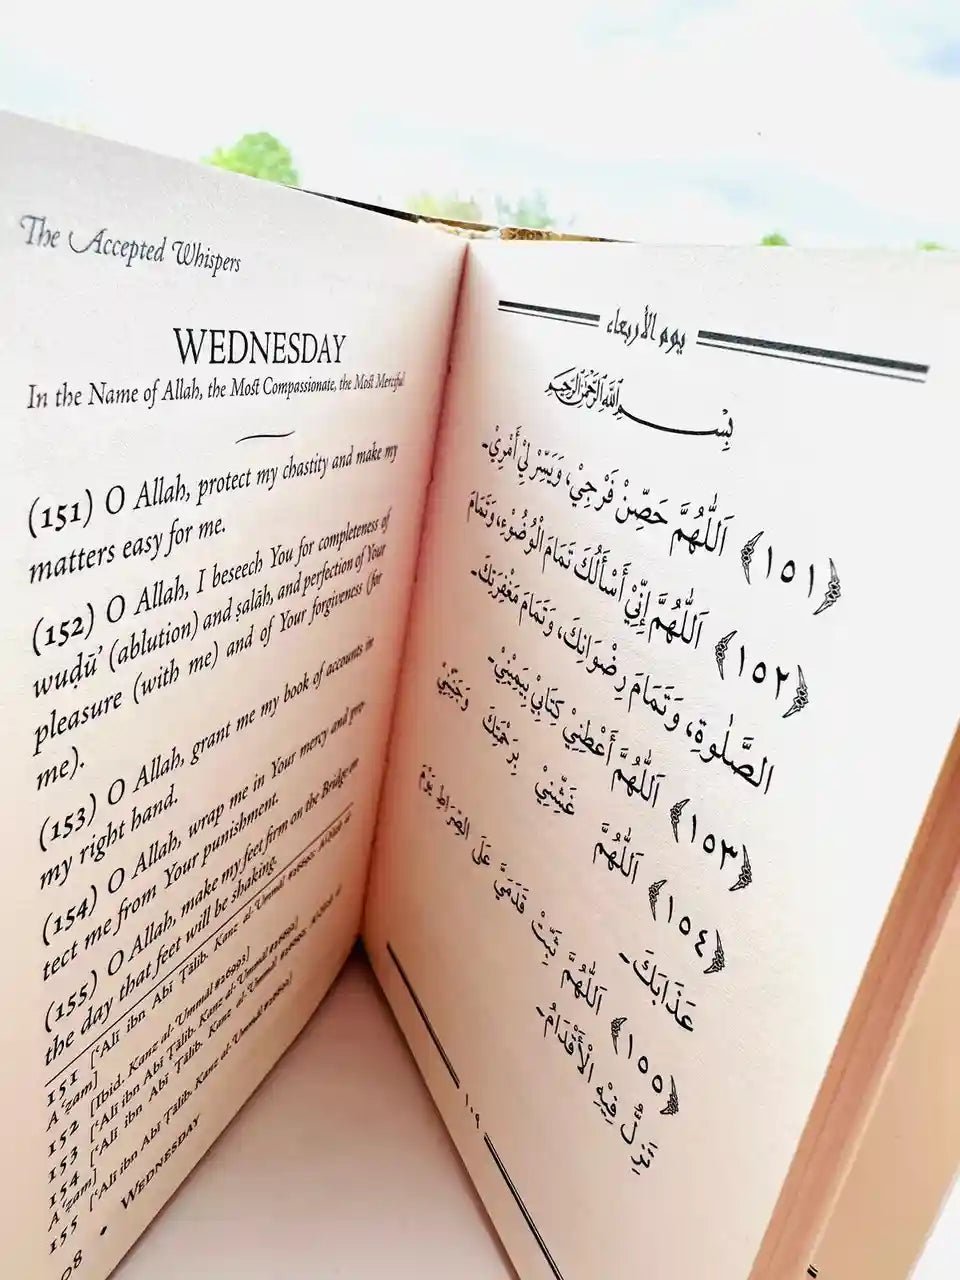 The Accepted Whispers
WEDNESDAY
In the Name of Allah, the Most Compassionate, the Most Merciful
(151) O Allah, protect my chastity and make my
matters easy for me.
(152) O Allah, I beseech You for completeness of
wuḍū' (ablution) and ṣalāh, and perfection of Your
pleasure (with me) and of Your forgiveness (for
me).
(153) O Allah, grant me my book of accounts in
my right hand.
(154) O Allah, wrap me in Your mercy and pro-
tect me from Your punishment.
(155) O Allah, make my feet firm on the Bridge on
the day that feet will be shaking.
151 ['Alī ibn Abī Ṭālib. Kanz al-'Ummāl #26990.
A'ẓam]
152 [Ibid. Kanz al-'Ummāl #26993]
153 ['Alī ibn Abī Ṭālib. Kanz al-'Ummāl
154 ['Alī ibn Abī Ṭālib. Kanz al-'Ummāl
A'ẓam]
155 ['Alī ibn Abī Ṭālib. Kanz al-'Ummāl
08 • WEDNESDAY
يوم الأربعاء
بِسْمِ اللهِ الرَّحْمٰنِ الرَّحِيْمِ
﴿١٥١﴾ اَللّٰهُمَّ حَصِّنْ فَرْجِيْ، وَيَسِّرْ لِيْ أَمْرِيْ۔
﴿١٥٢﴾ اَللّٰهُمَّ إِنِّيْ أَسْأَلُكَ تَمَامَ الْوُضُوْءِ، وَتَمَامَ
الصَّلٰوةِ، وَتَمَامَ رِضْوَانِكَ، وَتَمَامَ مَغْفِرَتِكَ۔
﴿١٥٣﴾ اَللّٰهُمَّ أَعْطِنِيْ كِتَابِيْ بِيَمِيْنِيْ۔
﴿١٥٤﴾ اَللّٰهُمَّ غَشِّنِيْ بِرَحْمَتِكَ وَجَنِّبْنِيْ
عَذَابَكَ۔
﴿١٥٥﴾ اَللّٰهُمَّ ثَبِّتْ قَدَمَيَّ عَلَى الصِّرَاطِ يَوْمَ
تَزِلُّ فِيْهِ الْأَقْدَامُ۔
١٠٩